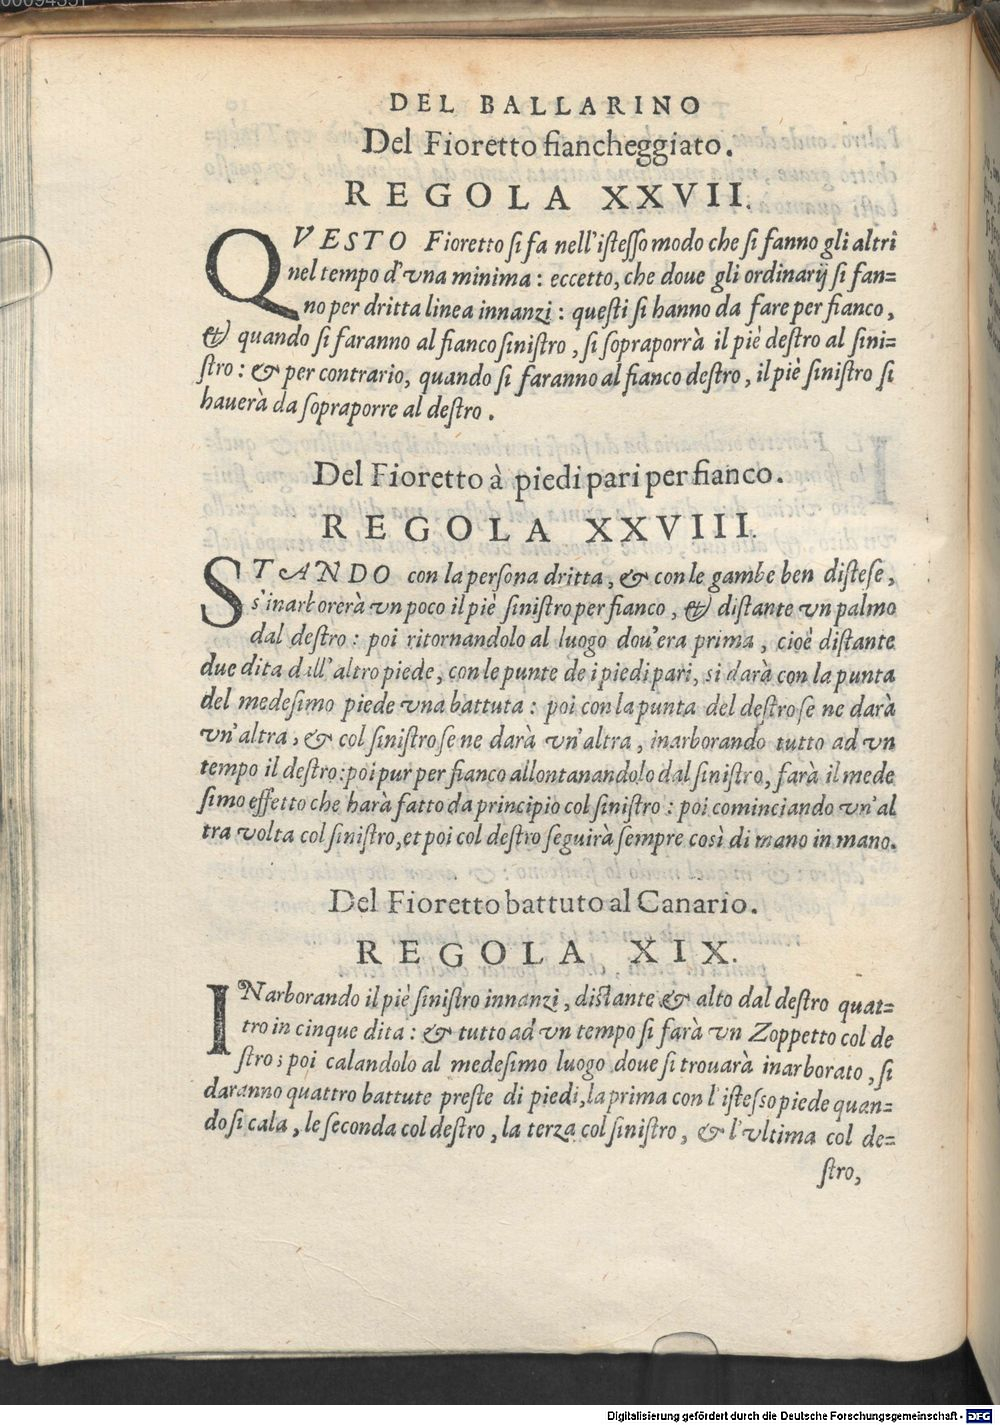 DEL BALLARINO
Del Fioretto fiancheggiato.
REGOLA XXVII.
QVESTO Fioretto si fa nell'istesso modo che si fanno gli altri
nel tempo d'vna minima: eccetto, che doue gli ordinarij si fan=
no per dritta linea innanzi: questi si hanno da fare per fianco,
& quando si faranno al fianco sinistro, si sopraporrà il piè destro al sini=
stro: & per contrario, quando si faranno al fianco destro, il piè sinistro si
hauerà da sopraporre al destro.
Del Fioretto à piedi pari per fianco.
REGOLA XXVIII.
STANDO con la persona dritta, & con le gambe ben distese,
s'inarborerà vn poco il piè sinistro per fianco, & distante vn palmo
dal destro: poi ritornandolo al luogo dou'era prima, cioè distante
due dita dall'altro piede, con le punte de i piedi pari, si darà con la punta
del medesimo piede vna battuta: poi con la punta del destro se ne darà
vn'altra, & col sinistro se ne darà vn'altra, inarborando tutto ad vn
tempo il destro: poi pur per fianco allontanandolo dal sinistro, farà il mede
simo effetto che harà fatto da principio col sinistro: poi cominciando vn'al
tra volta col sinistro, et poi col destro seguirà sempre così di mano in mano.
Del Fioretto battuto al Canario.
REGOLA XIX.
INarborando il piè sinistro innanzi, distante & alto dal destro quat=
tro in cinque dita: & tutto ad vn tempo si farà vn Zoppetto col de
stro; poi calandolo al medesimo luogo doue si trouarà inarborato, si
daranno quattro battute preste di piedi, la prima con l'istesso piede quan=
do si cala, le seconda col destro, la terza col sinistro, & l'vltima col de=
stro,
Digitalisierung gefördert durch die Deutsche Forschungsgemeinschaft - DFG